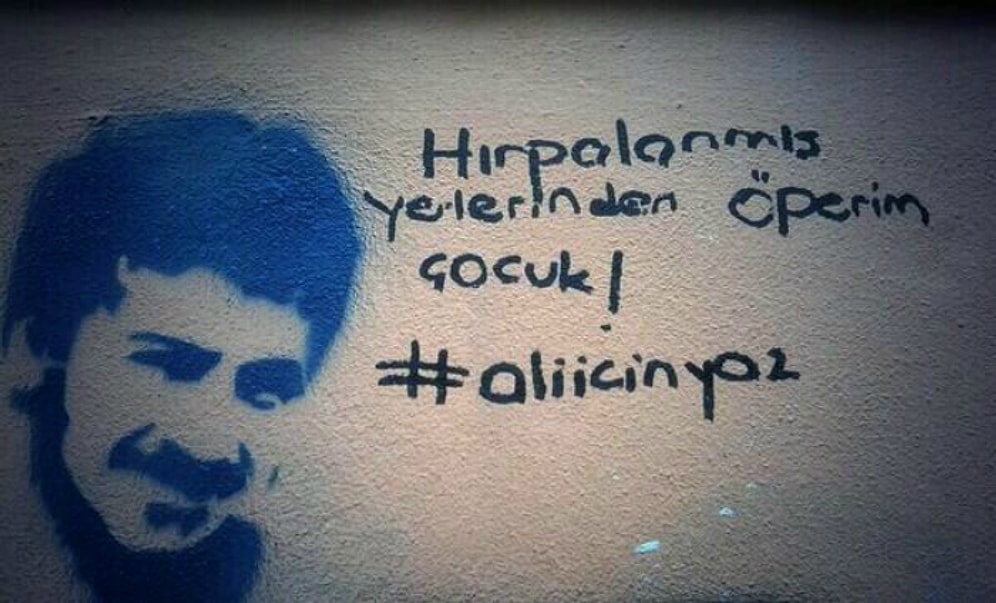 Hırpalanmıs
yerlerinden öperim
çocuk!
#aliicinyaz